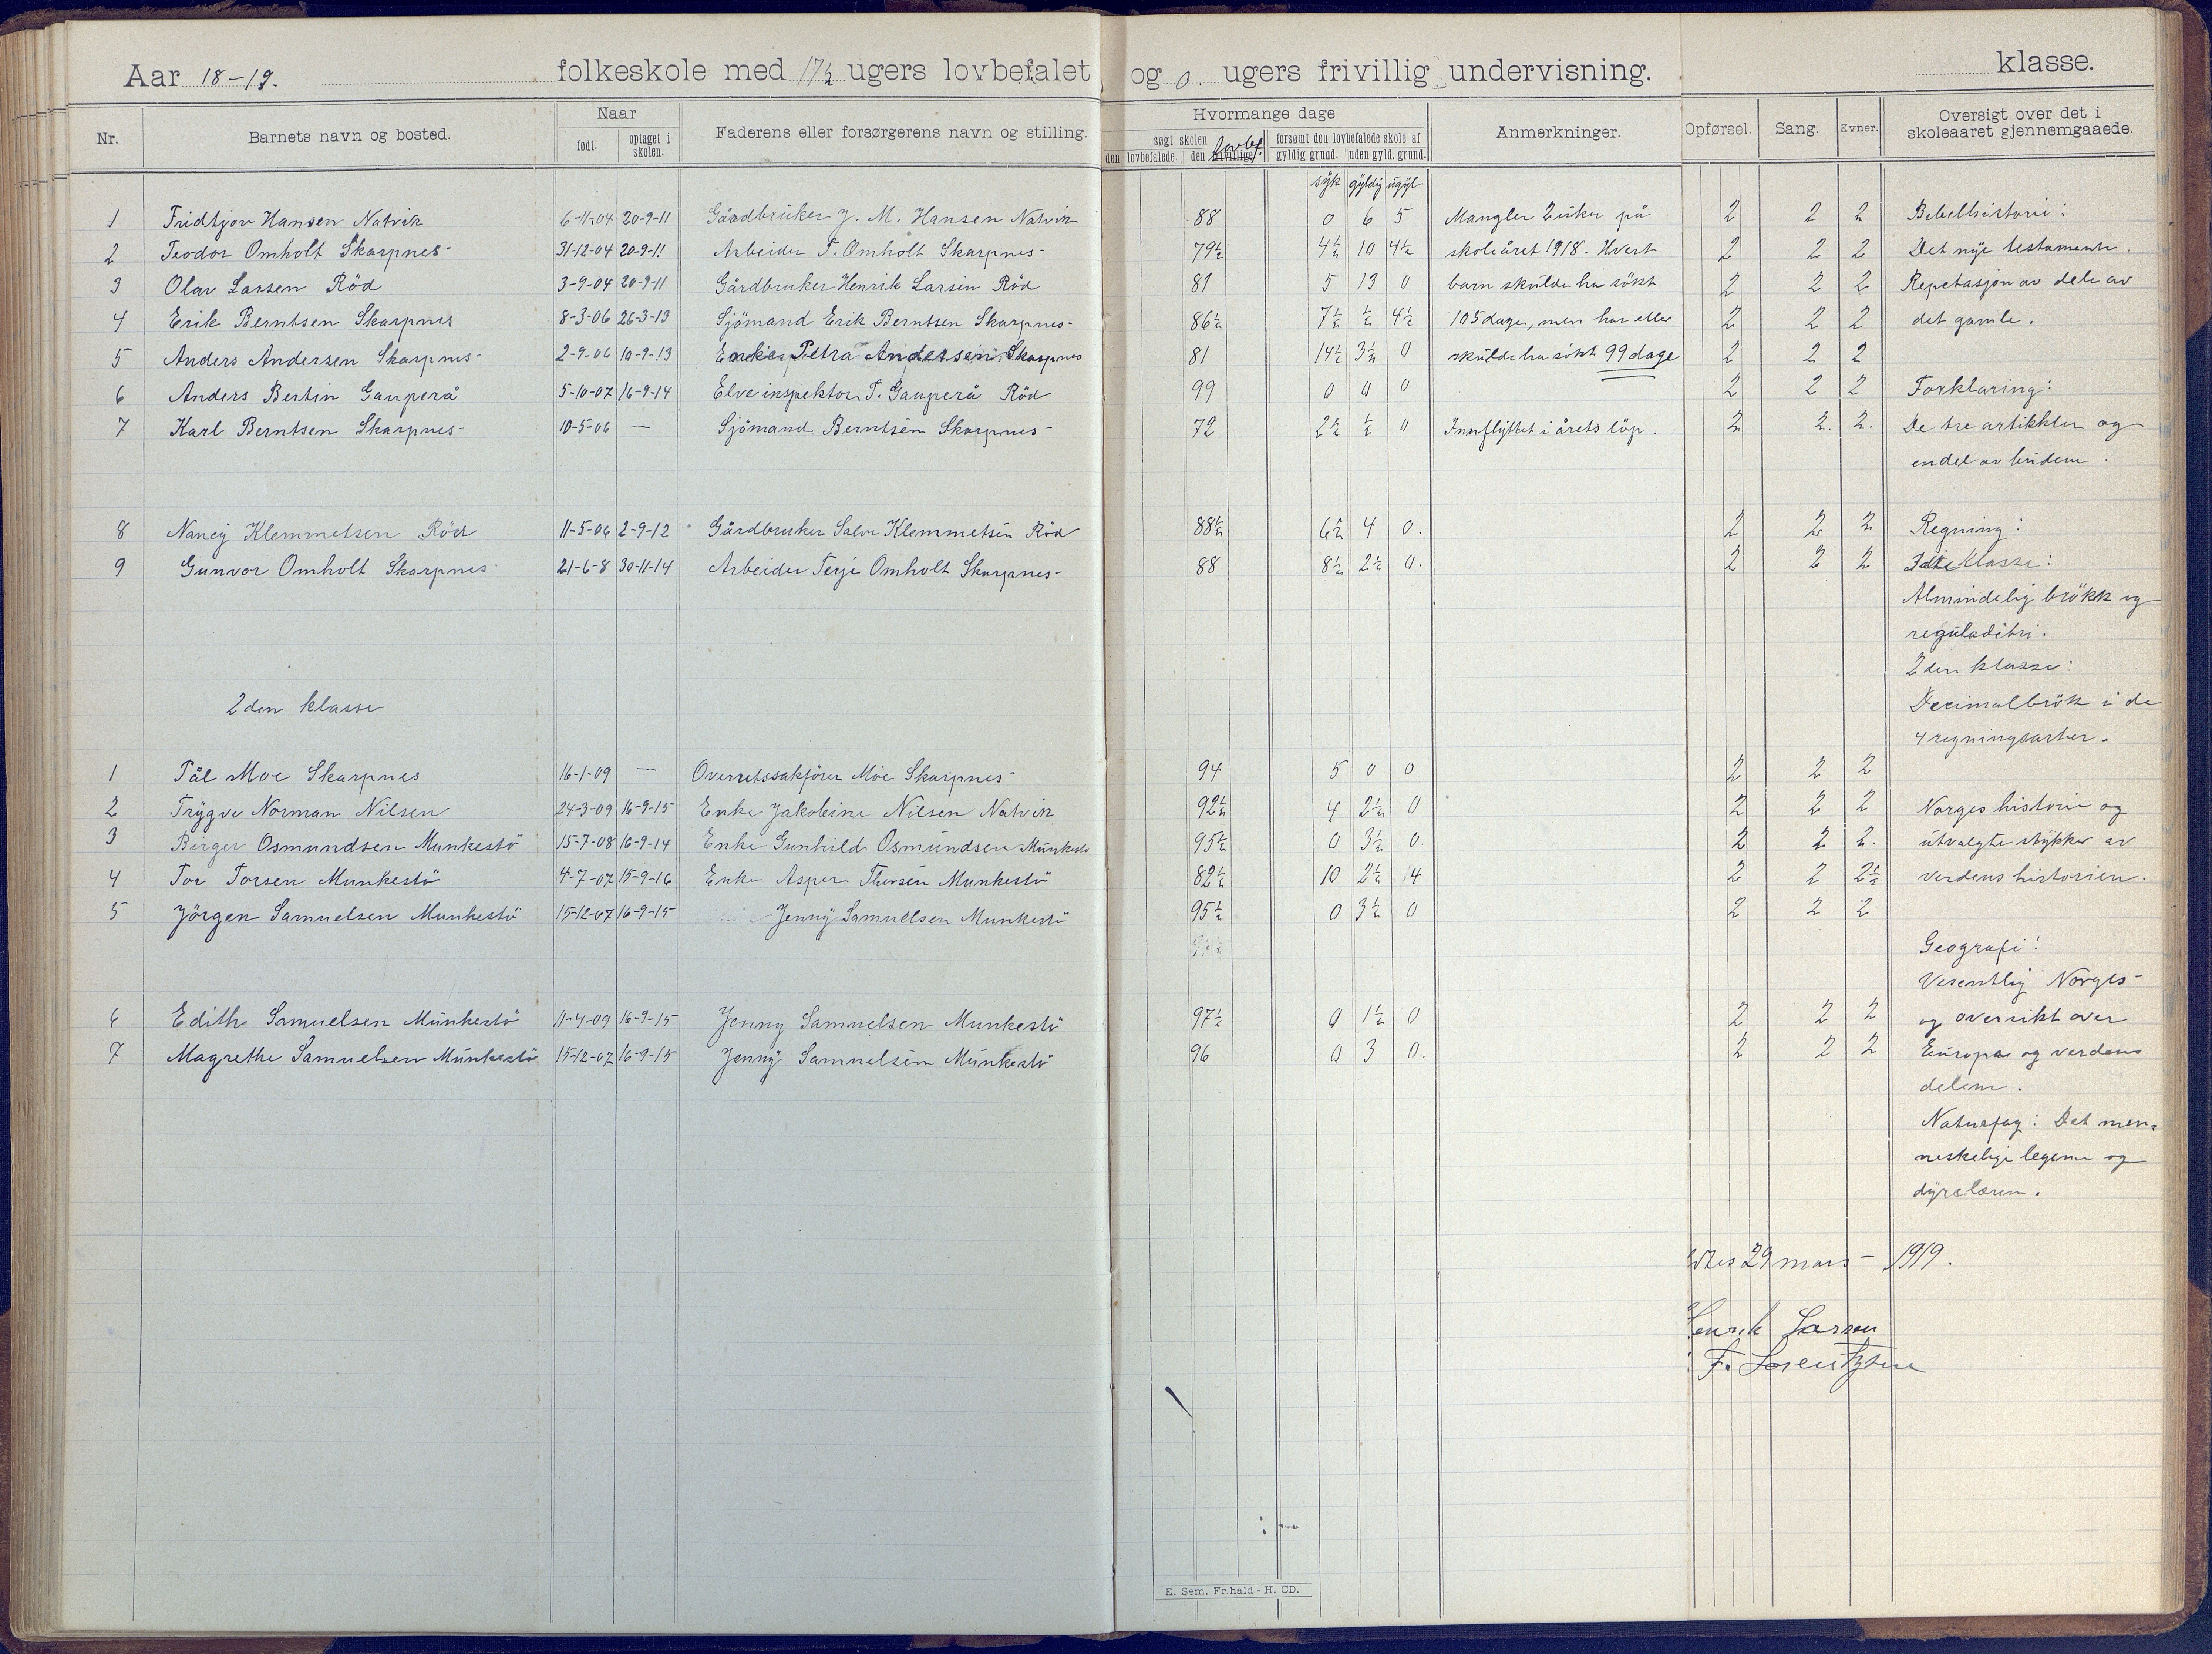 Aar 18-19. folkeskole med 17½ ugers lovbefalet og 0. ugers frivillig undervisning. klasse.
Nr. Barnets navn og bosted. Naar født. optaget i skolen. Faderens eller forsørgerens navn og stilling. Hvormange dage søgt skolen den lovbefalede. den frivillige. lovbef. forsømt den lovbefalede skole af gyldig grund. uden gyld. grund. Anmerkninger. Opførsel. Sang. Evner. Oversigt over det i skoleaaret gjennemgaaede.
syk gyldig ugyl
1 Fridtjov Hansen Natvik 6-11-04 20-9-11 Gårdbruker J. M. Hansen Natvik 88 0 6 5 Mangler 2 uker på 2 2 2 Bibelhistorie:
2 Teodor Omholt Skarpnes 31-12-04 20-9-11 Arbeider T. Omholt Skarpnes 79½ 4½ 10 4½ skoleåret 1918. Hvert 2 2 2 Det nye testamente.
3 Olav Larsen Röd 3-9-04 20-9-11 Gårdbruker Henrik Larsen Röd 81 5 13 0 barn skulde ha sökt 2 2 2 Repetasjon av dele av
4 Erik Berntsen Skarpnes 8-3-06 26-3-13 Sjömand Erik Berntsen Skarpnes 86½ 7½ ½ 4½ 105 dage, men har eller 2 2 2 det gamle.
5 Anders Andersen Skarpnes 2-9-06 10-9-13 Enke Petra Andersen Skarpnes 81 14½ 3½ 0 skulde ha sökt 99 dage 2 2 2
6 Anders Bertin Gauperå 5-10-07 16-9-14 Elveinspektor T. Gauperå Röd 99 0 0 0 2 2 2 Forklaring:
7 Karl Berntsen Skarpnes 10-5-06 — Sjömand Berntsen Skarpnes 72 2½ ½ 0 Innflyttet i årets löp. 2 2. 2. De tre artikkler og
endel av budene.
8 Nancy Klemmetsen Röd 11-5-06 2-9-12 Gårdbruker Salve Klemmetsen Röd 88½ 6½ 4 0. 2 2 2 Regning:
9 Gunvor Omholt Skarpnes 21-6-8 30-11-14 Arbeider Terje Omholt Skarpnes 88 8½ 2½ 0. 2 2 2 klasse:
Almindelig brökk og
reguladetri.
2den klasse:
2den klasse Decimalbrök i de
4 regningsarter.
1 Pål Moe Skarpnes 16-1-09 — Overretssakförer Moe Skarpnes 94 5 0 0 2 2 2
2 Trygve Norman Nilsen 24-3-09 16-9-15 Enke Jakobine Nilsen Natvik 92½ 4 2½ 0 2 2 2 Norges historie og
3 Birger Osmundsen Munkestö 15-7-08 16-9-14 Enke Gunhild Osmundsen Munkestö 95½ 0 3½ 0. 2 2 2. utvalgte stykker av
4 Tor Torsen Munkestö 4-7-07 15-9-16 Enke Asper Thorsen Munkestö 82½ 10 2½ 14 2 2 2½ verdenshistorien.
5 Jörgen Samuelsen Munkestö 15-12-07 16-9-15 Jenny Samuelsen Munkestö 95½ 0 3½ 0 2 2 2
Geografi:
Vesentlig Norges
6 Edith Samuelsen Munkestö 11-4-09 16-9-15 Jenny Samuelsen Munkestö 97½ 0 1½ 0 2 2 2 og oversikt over
7 Magrethe Samuelsen Munkestö 15-12-07 16-9-15 Jenny Samuelsen Munkestö 96 0 3 0. 2 2 2 Europa og verdens
delene.
Naturfag: Det men-
neskelige legeme og
dyrelæren.
29 mars - 1919.
Henrik Larsen
F. Lorentzen
E. Sem. Fr.hald - H. CD.